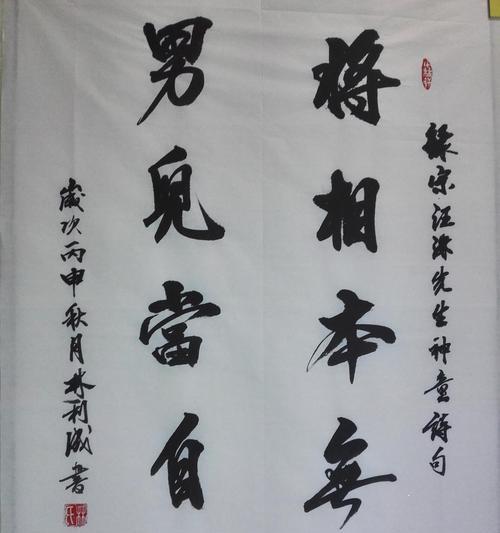 錄宋汪洙先生神童詩句
將相本無
男兒當自
歲次丙申秋月林利書
林氏